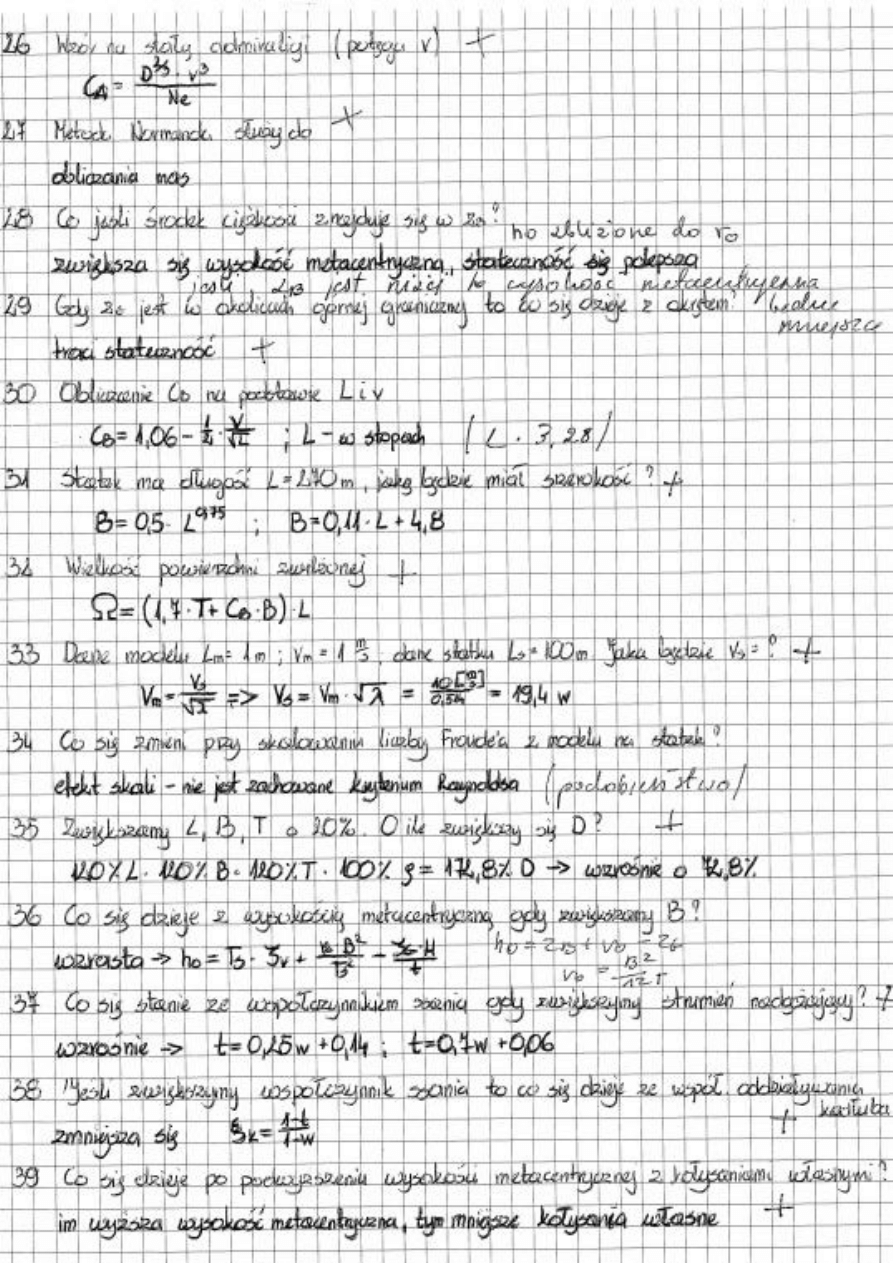 26 Wzór na stały admiralicji (potęga v) +
CA = D^2/3 · v^3 / Ne
27 Metoda Normanda służy do +
obliczania mas
28 Co jeśli środek ciężkości znajduje się w zB? h0 zbliżone do r0
zwiększa się wysokość metacentryczna, stateczność się polepsza
jeśli, zB jest niżej to wysokość metacentryczna
29 Gdy zG jest w okolicach górnej granicznej to co się dzieje z okrętem? będzie mniejsza
traci stateczność +
30 Obliczenie CB na podstawie L i v
CB = 1,06 - 1/4 · V/√L ; L - w stopach / L · 3,28 /
31 Statek ma długość L=270m, jaką będzie miał szerokość? +
B = 0,5 · L^0,75 ; B = 0,11 · L + 4,8
32 Wielkość powierzchni zwilżonej +
Ω = (1,7 · T + CB · B) · L
33 Dane modelu Lm = 1m ; vm = 1 m/s, dane statku Ls = 100m Jaka będzie vs = ? +
Vm = Vs/√λ => Vs = Vm · √λ = 10[m/s]/0,514 = 19,4 w
34 Co się zmieni przy skalowaniu liczby Froude'a z modelu na statek?
efekt skali - nie jest zachowane kryterium Raynoldsa / podobieństwo /
35 Zwiększamy L, B, T o 20%. O ile zwiększy się D? +
120% L · 120% B · 120% T · 100% ρ = 172,8% D -> wzrośnie o 72,8%
36 Co się dzieje z wysokością metacentryczną gdy zwiększamy B?
wzrasta -> h0 = Ts · ζv + B^2/Ts^2 - ζG·H/t h0 = zB + r0 - zG
r0 = B^2/12T
37 Co się stanie ze współczynnikiem ssania gdy zwiększymy strumień nadążający? +
wzrośnie -> t = 0,25w + 0,14 ; t = 0,7w + 0,06
38 Jeśli zwiększymy współczynnik ssania to co się dzieje ze współ. oddziaływania kadłuba
zmniejsza się ξk = 1-t/1-w +
39 Co się dzieje po podwyższeniu wysokości metacentrycznej z kołysaniami własnymi?
im wyższa wysokość metacentryczna, tym mniejsze kołysania własne +